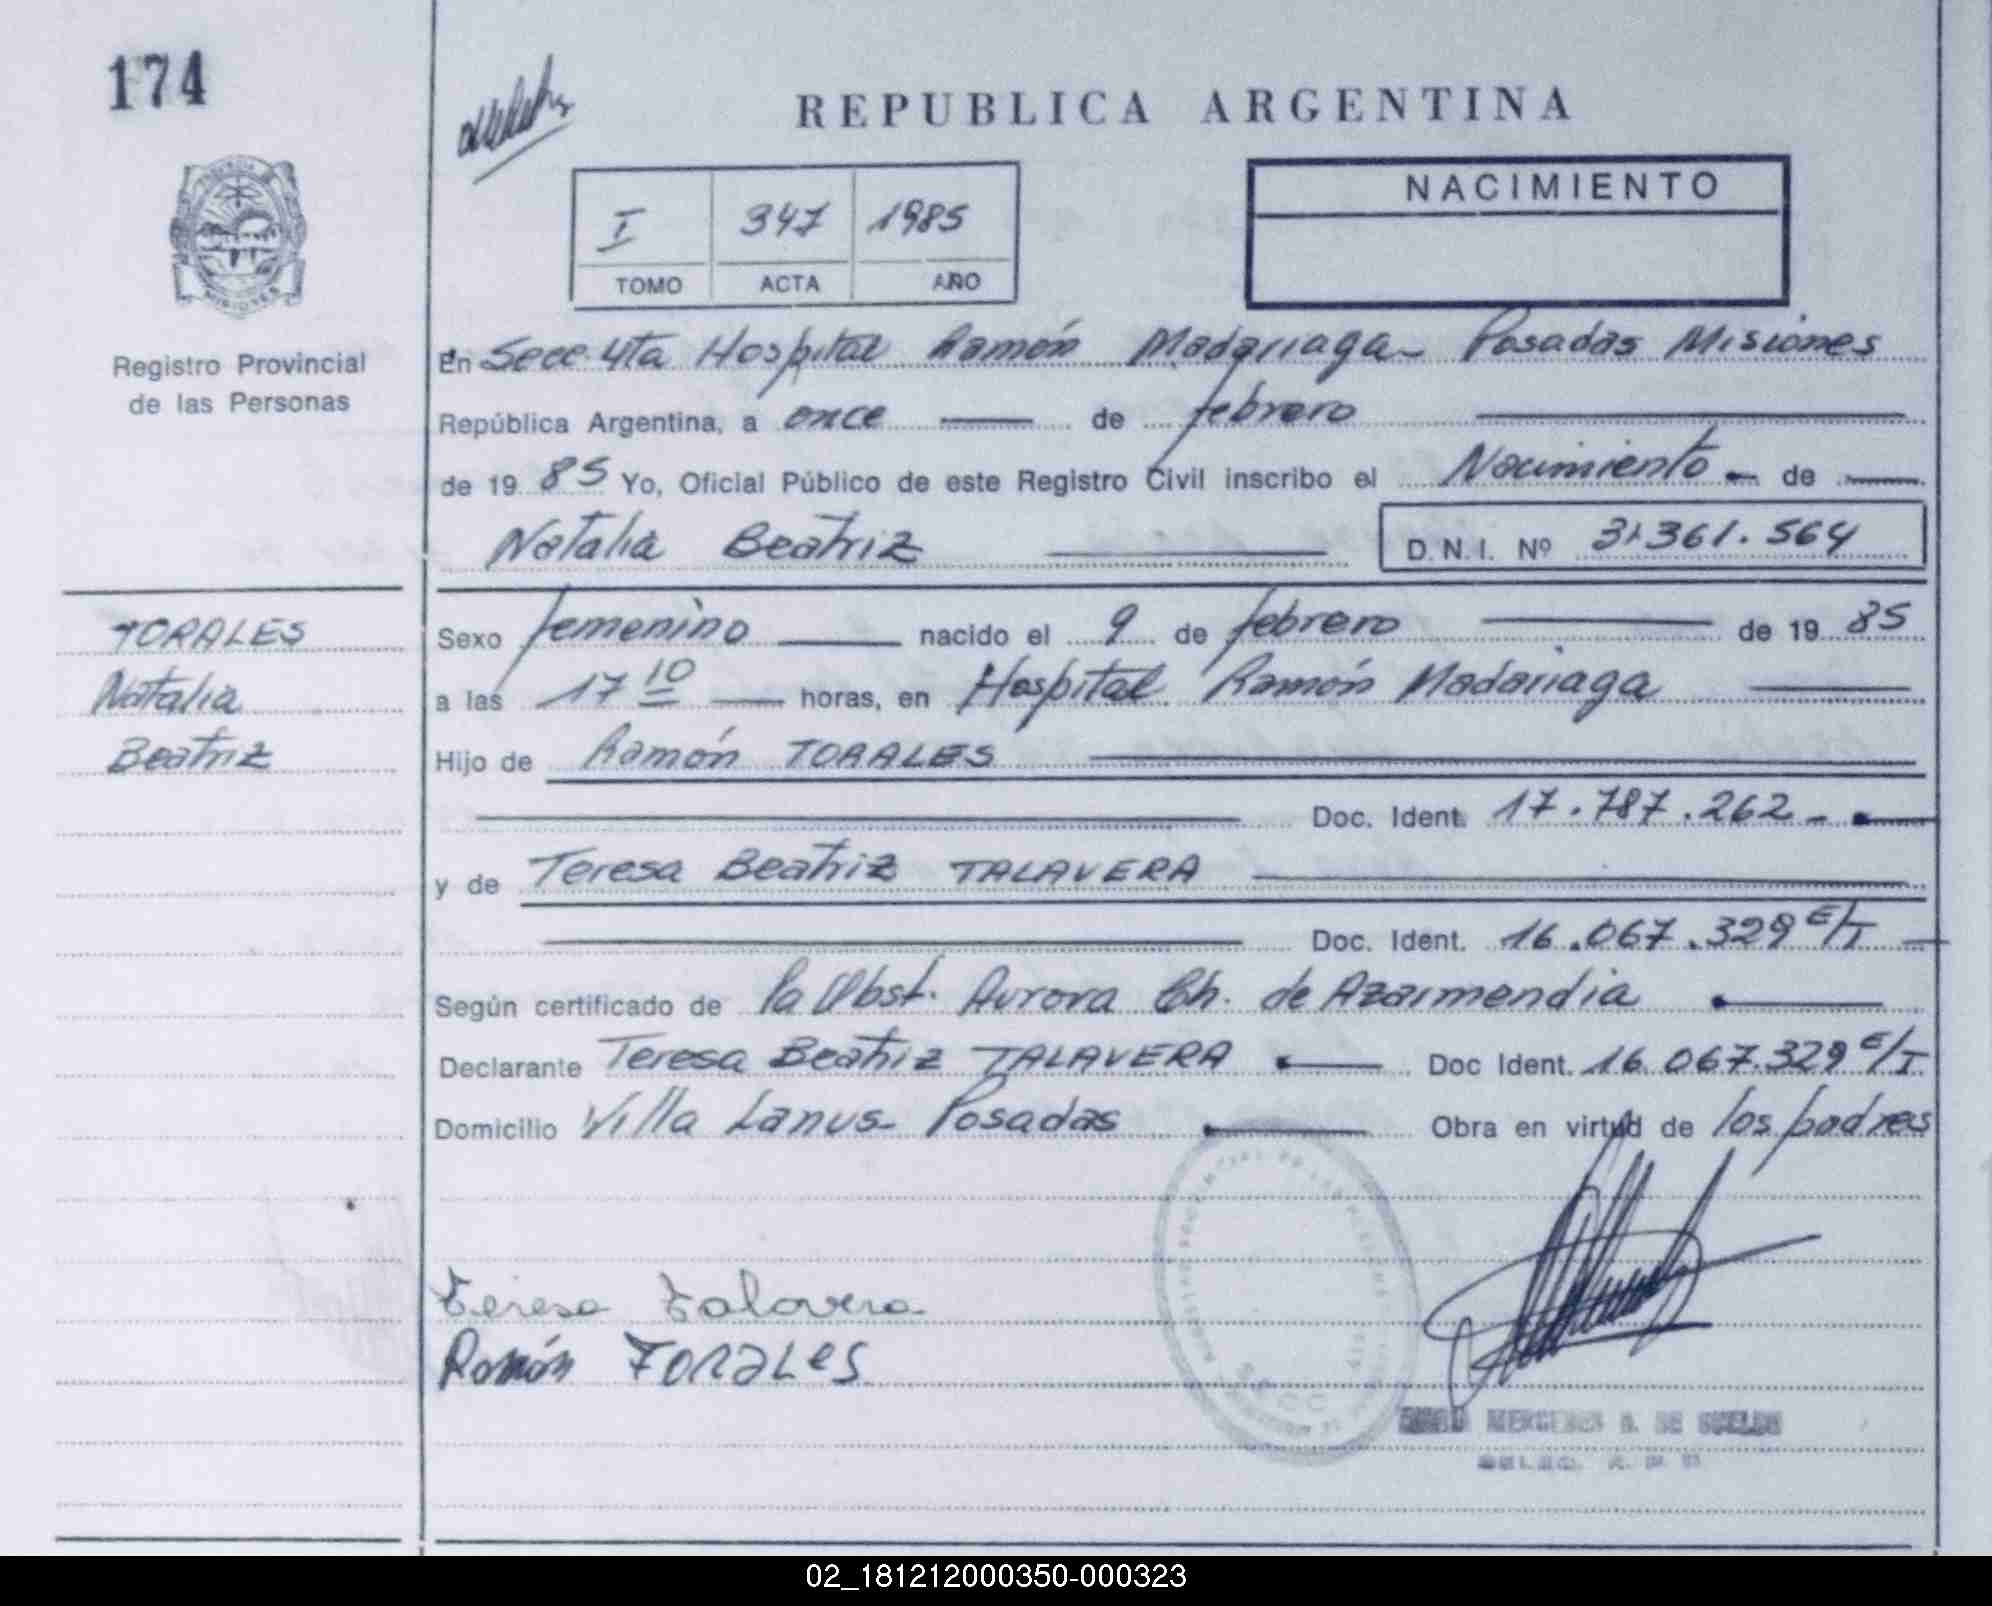 174
REPUBLICA ARGENTINA
NACIMIENTO
I 347 1985
TOMO ACTA AÑO
Registro Provincial
de las Personas
En Secc. 4ta Hospital Ramón Madariaga - Posadas Misiones
República Argentina, a once de febrero
de 19 85 Yo, Oficial Público de este Registro Civil inscribo el Nacimiento - de
Natalia Beatriz D.N.I. Nº 31.361.564
TORALES
Natalia
Beatriz
Sexo femenino nacido el 9 de febrero de 19 85
a las 17 10 horas, en Hospital Ramón Madariaga
Hijo de Ramón TORALES
Doc. Ident. 17.787.262 -
y de Teresa Beatriz TALAVERA
Doc. Ident. 16.067.329 E/T
Según certificado de la Obst. Aurora Ch. de Azarmendia
Declarante Teresa Beatriz TALAVERA Doc Ident. 16.067.329 E/T
Domicilio Villa Lanus - Posadas Obra en virtud de los padres
Teresa Talavera
Ramón TORALES
02_181212000350-000323